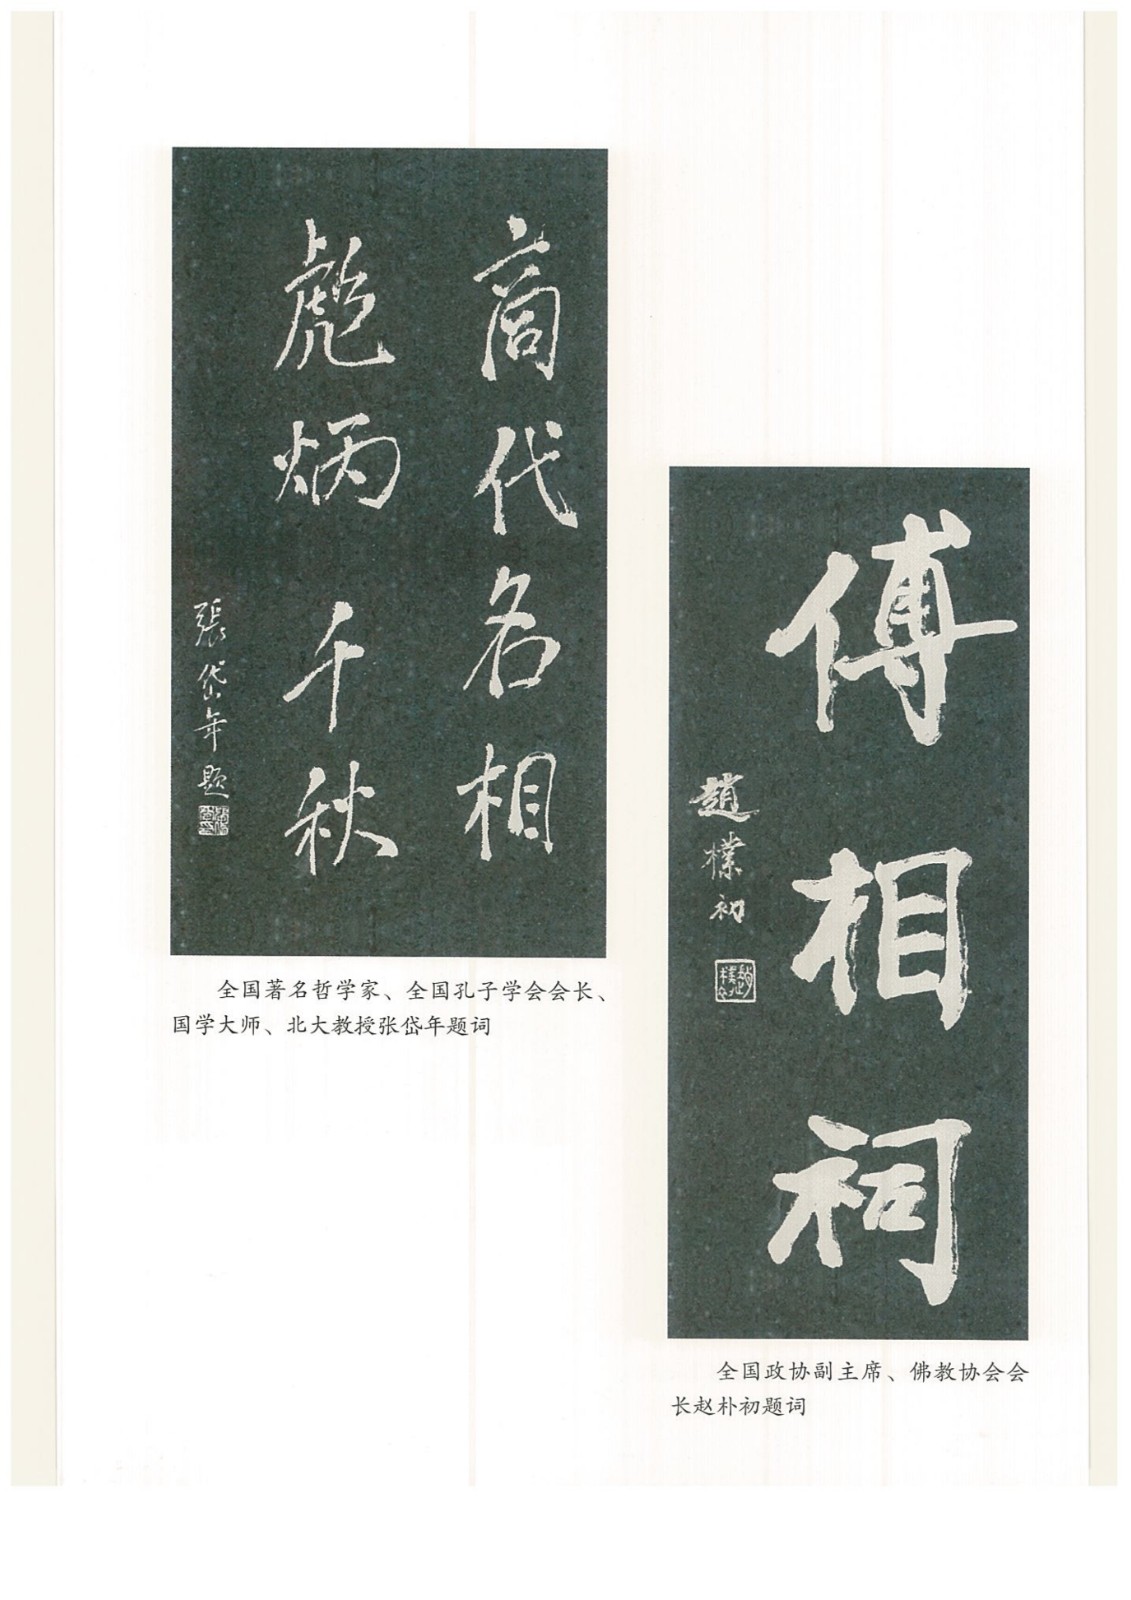 商代名相
彪炳千秋
張岱年題
全国著名哲学家、全国孔子学会会长、
国学大师、北大教授张岱年题词
傅相祠
趙樸初
全国政协副主席、佛教协会会
长赵朴初题词